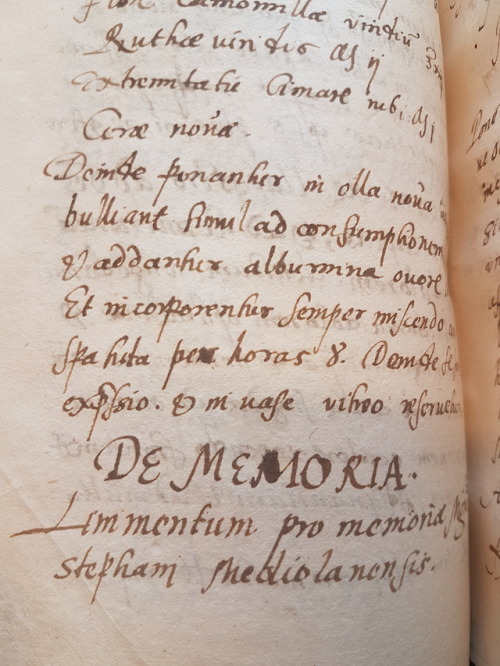 flor Camomillæ viridiũ
Ruthæ viridis ℥ ij
extremitatũ Cimarẽ
Ceræ novæ.
Deinde ponantur in olla nova
bulliant simul ad consumptionem
& addantur albumina ovorẽ
Et incorporentur semper miscendo
spatula per horas 8. Deinde
expssio. & in vase vitreo
DE MEMORIA.
Linimentum pro memoria
Stephani Mediolanensis.